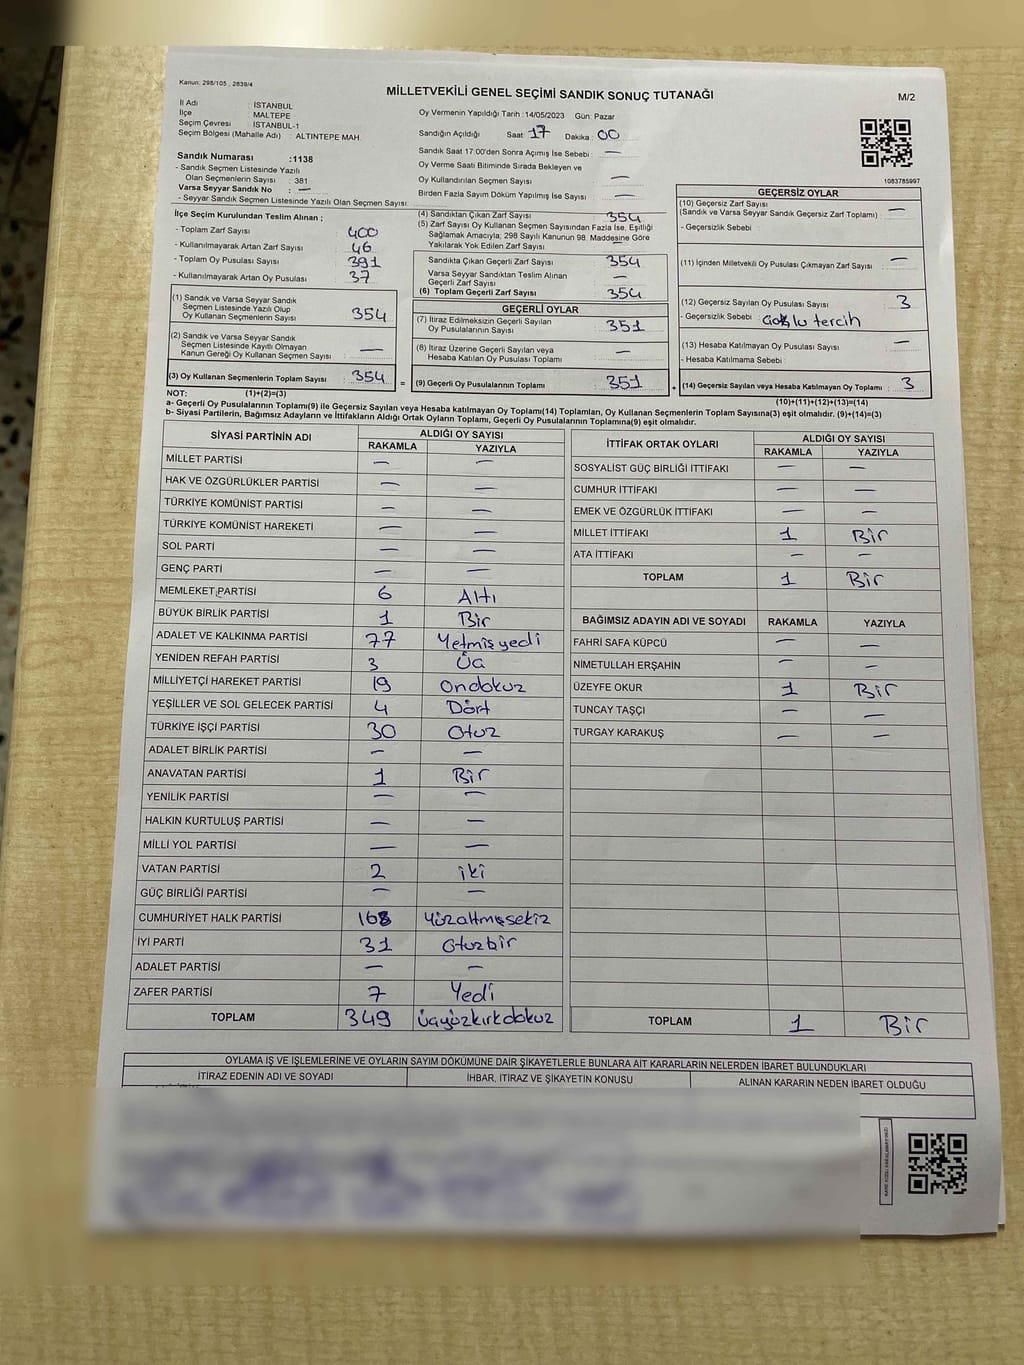 Kanun: 298/105 , 2839/4
MİLLETVEKİLİ GENEL SEÇİMİ SANDIK SONUÇ TUTANAĞI
M/2
İl Adı : İSTANBUL
İlçe : MALTEPE
Seçim Çevresi : İSTANBUL-1
Seçim Bölgesi (Mahalle Adı) : ALTINTEPE MAH.
Oy Vermenin Yapıldığı Tarih : 14/05/2023 Gün: Pazar
Sandığın Açıldığı Saat : 17 Dakika : 00
Sandık Saat 17:00'den Sonra Açımış İse Sebebi : —
Oy Verme Saati Bitiminde Sırada Bekleyen ve
Oy Kullandırılan Seçmen Sayısı : —
Birden Fazla Sayım Döküm Yapılmış İse Sayısı : —
1083785997
Sandık Numarası :1138
- Sandık Seçmen Listesinde Yazılı
Olan Seçmenlerin Sayısı : 381
Varsa Seyyar Sandık No : —
- Seyyar Sandık Seçmen Listesinde Yazılı Olan Seçmen Sayısı:
İlçe Seçim Kurulundan Teslim Alınan ;
- Toplam Zarf Sayısı : 400
- Kullanılmayarak Artan Zarf Sayısı : 46
- Toplam Oy Pusulası Sayısı : 391
- Kullanılmayarak Artan Oy Pusulası : 37
(4) Sandıktan Çıkan Zarf Sayısı : 354
(5) Zarf Sayısı Oy Kullanan Seçmen Sayısından Fazla İse, Eşitliği
Sağlamak Amacıyla; 298 Sayılı Kanunun 98. Maddesine Göre
Yakılarak Yok Edilen Zarf Sayısı : —
Sandıkta Çıkan Geçerli Zarf Sayısı : 354
Varsa Seyyar Sandıktan Teslim Alınan
Geçerli Zarf Sayısı : —
(6) Toplam Geçerli Zarf Sayısı : 354
(1) Sandık ve Varsa Seyyar Sandık
Seçmen Listesinde Yazılı Olup
Oy Kullanan Seçmenlerin Sayısı : 354
(2) Sandık ve Varsa Seyyar Sandık
Seçmen Listesinde Kayıtlı Olmayan
Kanun Gereği Oy Kullanan Seçmen Sayısı : —
(3) Oy Kullanan Seçmenlerin Toplam Sayısı : 354 =
GEÇERLİ OYLAR
(7) İtiraz Edilmeksizin Geçerli Sayılan
Oy Pusulalarının Sayısı : 351
(8) İtiraz Üzerine Geçerli Sayılan veya
Hesaba Katılan Oy Pusulası Toplamı : —
(9) Geçerli Oy Pusulalarının Toplamı : 351 +
GEÇERSİZ OYLAR
(10) Geçersiz Zarf Sayısı : —
(Sandık ve Varsa Seyyar Sandık Geçersiz Zarf Toplamı)
- Geçersizlik Sebebi :
(11) İçinden Milletvekili Oy Pusulası Çıkmayan Zarf Sayısı : —
(12) Geçersiz Sayılan Oy Pusulası Sayısı : 3
- Geçersizlik Sebebi : Çoklu tercih
(13) Hesaba Katılmayan Oy Pusulası Sayısı : —
- Hesaba Katılmama Sebebi :
(14) Geçersiz Sayılan veya Hesaba Katılmayan Oy Toplamı : 3
NOT: (1)+(2)=(3)
(10)+(11)+(12)+(13)=(14)
a- Geçerli Oy Pusulalarının Toplamı(9) ile Geçersiz Sayılan veya Hesaba katılmayan Oy Toplamı(14) Toplamları, Oy Kullanan Seçmenlerin Toplam Sayısına(3) eşit olmalıdır. (9)+(14)=(3)
b- Siyasi Partilerin, Bağımsız Adayların ve İttifakların Aldığı Ortak Oyların Toplamı, Geçerli Oy Pusulalarının Toplamına(9) eşit olmalıdır.
SİYASİ PARTİNİN ADI ALDIĞI OY SAYISI
RAKAMLA YAZIYLA
MİLLET PARTİSİ — —
HAK VE ÖZGÜRLÜKLER PARTİSİ — —
TÜRKİYE KOMÜNİST PARTİSİ — —
TÜRKİYE KOMÜNİST HAREKETİ — —
SOL PARTİ — —
GENÇ PARTİ — —
MEMLEKET PARTİSİ 6 Altı
BÜYÜK BİRLİK PARTİSİ 1 Bir
ADALET VE KALKINMA PARTİSİ 77 Yetmişyedi
YENİDEN REFAH PARTİSİ 3 Üç
MİLLİYETÇİ HAREKET PARTİSİ 19 Ondokuz
YEŞİLLER VE SOL GELECEK PARTİSİ 4 Dört
TÜRKİYE İŞÇİ PARTİSİ 30 Otuz
ADALET BİRLİK PARTİSİ — —
ANAVATAN PARTİSİ 1 Bir
YENİLİK PARTİSİ — —
HALKIN KURTULUŞ PARTİSİ — —
MİLLİ YOL PARTİSİ — —
VATAN PARTİSİ 2 iki
GÜÇ BİRLİĞİ PARTİSİ — —
CUMHURİYET HALK PARTİSİ 168 Yüzaltmışsekiz
İYİ PARTİ 31 Otuzbir
ADALET PARTİSİ — —
ZAFER PARTİSİ 7 Yedi
TOPLAM 349 üçyüzkırkdokuz
İTTİFAK ORTAK OYLARI ALDIĞI OY SAYISI
RAKAMLA YAZIYLA
SOSYALİST GÜÇ BİRLİĞİ İTTİFAKI — —
CUMHUR İTTİFAKI — —
EMEK VE ÖZGÜRLÜK İTTİFAKI — —
MİLLET İTTİFAKI 1 Bir
ATA İTTİFAKI — —
TOPLAM 1 Bir
BAĞIMSIZ ADAYIN ADI VE SOYADI RAKAMLA YAZIYLA
FAHRİ SAFA KÜPCÜ — —
NİMETULLAH ERŞAHİN — —
ÜZEYFE OKUR 1 Bir
TUNCAY TAŞÇI — —
TURGAY KARAKUŞ — —
TOPLAM 1 Bir
OYLAMA İŞ VE İŞLEMLERİNE VE OYLARIN SAYIM DÖKÜMÜNE DAİR ŞİKAYETLERLE BUNLARA AİT KARARLARIN NELERDEN İBARET BULUNDUKLARI
İTİRAZ EDENİN ADI VE SOYADI İHBAR, İTİRAZ VE ŞİKAYETİN KONUSU ALINAN KARARIN NEDEN İBARET OLDUĞU